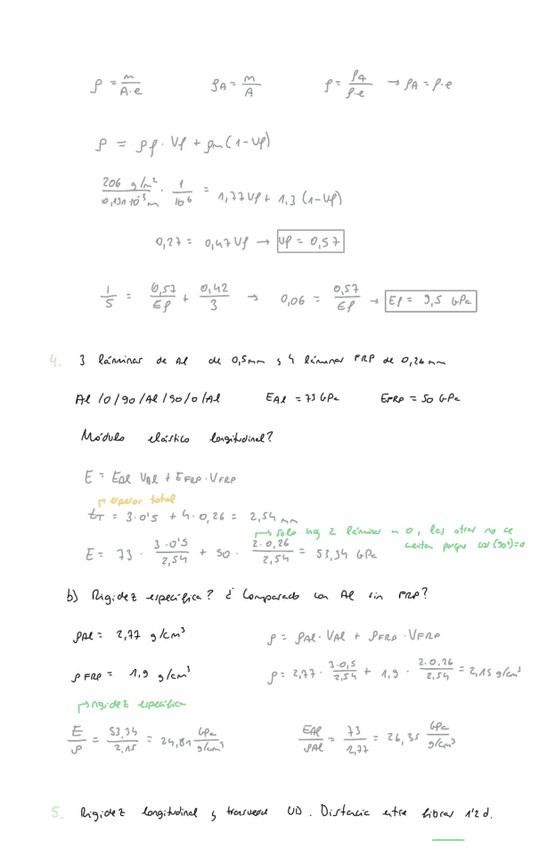 ρ = m/A·e    ρA = m/A    ρ = ρA/ρ·e → ρA = ρ·e
ρ = ρf · Vf + ρm (1-Vf)
206 g/m²/0,131·10⁻³ m · 1/10⁶ = 1,77 Vf + 1,3 (1-Vf)
0,27 = 0,47 Vf → Vf = 0,57
1/5 = 0,57/Ef + 0,42/3 → 0,06 = 0,57/Ef → Ef = 9,5 GPa
4. 3 láminas de Al de 0,5mm y 4 láminas FRP de 0,26 mm
Al /0/90/Al/90/0/Al    EAl = 73 GPa    EFRP = 50 GPa
Módulo elástico longitudinal?
E = EAl VAl + EFRP · VFRP
→ espesor total
tT = 3·0'5 + 4·0,26 = 2,54 mm
→ solo hay 2 láminas a 0, las otras no se
cuentan porque cos(90°)=0
E = 73 · 3·0'5/2,54 + 50 · 2·0,26/2,54 = 53,34 GPa
b) Rigidez específica? ¿ Comparado con Al sin FRP?
ρAl = 2,77 g/cm³    ρ = ρAl · VAl + ρFRP · VFRP
ρFRP = 1,9 g/cm³    ρ = 2,77 · 3·0,5/2,54 + 1,9 · 2·0,26/2,54 = 2,15 g/cm³
→ rigidez específica
E/ρ = 53,34/2,15 = 24,81 GPa/g/cm³    EAl/ρAl = 73/2,77 = 26,35 GPa/g/cm³
5. Rigidez longitudinal y trasversal UD. Distancia entre fibras 1'2 d.